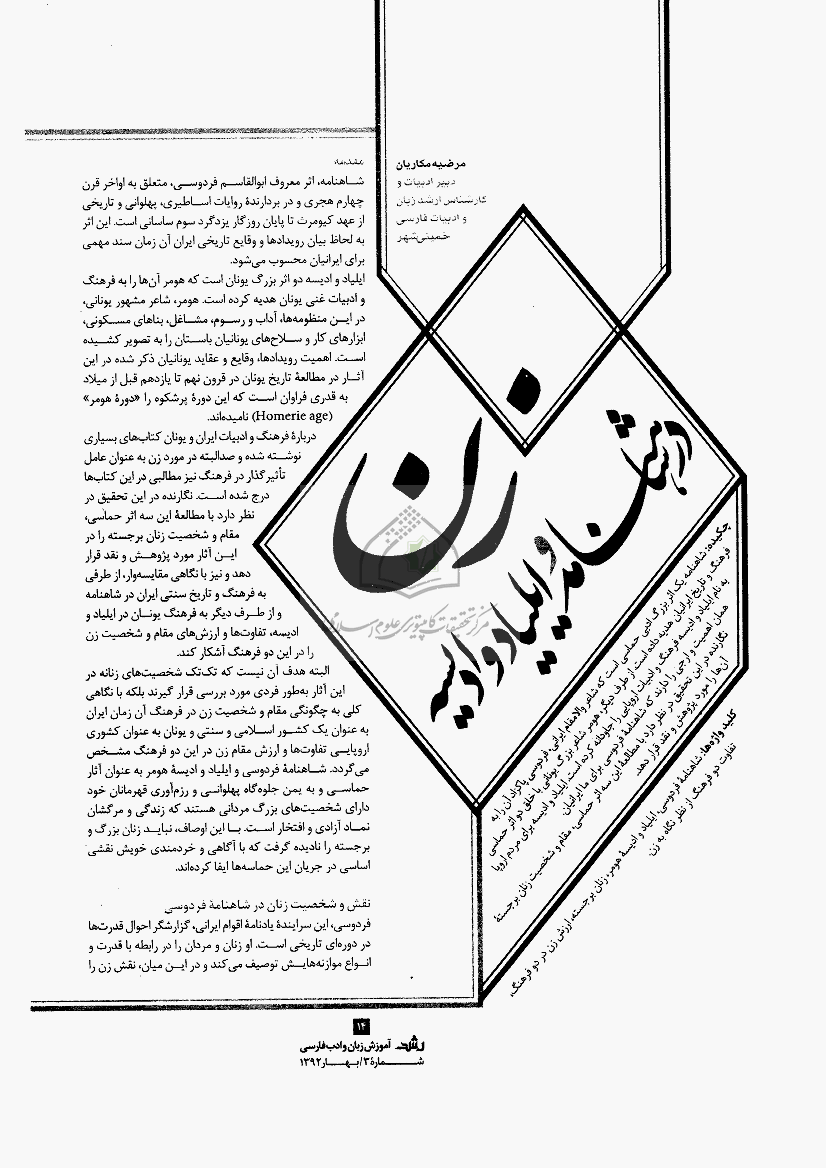 مرضیه مکاریان
دبیر ادبیات و
کارشناس ارشد زبان
و ادبیات فارسی
خمینی‌شهر
زن
در شاهنامه و ایلیاد و ادیسه
چکیده: شاهنامه یک اثر بزرگ ادبی حماسی است که شاعر والامقام ایرانی، فردوسی پاکزاد آن را به
فرهنگ و تاریخ ایرانیان هدیه داده است. از طرف دیگر هومر شاعر بزرگ یونانی با خلق دو اثر حماسی
به نام ایلیاد و ادیسه فرهنگ و ادبیات اروپایی را جاودانه کرده است. ایلیاد و ادیسه برای مردم اروپا
همان اهمیت و ارجی را دارند که شاهنامهٔ فردوسی برای ما ایرانیان
نگارنده در این تحقیق در نظر دارد با مطالعهٔ این سه اثر حماسی، مقام و شخصیت زنان برجستهٔ
آن‌ها را مورد پژوهش و نقد قرار دهد.
کلید واژه‌ها: شاهنامهٔ فردوسی، ایلیاد و ادیسهٔ هومر، زنان برجسته، ارزش زن در دو فرهنگ،
تفاوت دو فرهنگ از نظر نگاه به زن
مقدمه
شاهنامه، اثر معروف ابوالقاسم فردوسی، متعلق به اواخر قرن
چهارم هجری و در بردارندهٔ روایات اساطیری، پهلوانی و تاریخی
از عهد کیومرث تا پایان روزگار یزدگرد سوم ساسانی است. این اثر
به لحاظ بیان رویدادها و وقایع تاریخی ایران آن زمان سند مهمی
برای ایرانیان محسوب می‌شود.
ایلیاد و ادیسه دو اثر بزرگ یونان است که هومر آن‌ها را به فرهنگ
و ادبیات غنی یونان هدیه کرده است. هومر، شاعر مشهور یونانی،
در این منظومه‌ها، آداب و رسوم، مشاغل، بناهای مسکونی،
ابزارهای کار و سلاح‌های یونانیان باستان را به تصویر کشیده
است. اهمیت رویدادها، وقایع و عقاید یونانیان ذکر شده در این
آثار در مطالعهٔ تاریخ یونان در قرون نهم تا یازدهم قبل از میلاد
به قدری فراوان است که این دورهٔ پرشکوه را «دورهٔ هومر»
(Homerie age) نامیده‌اند.
دربارهٔ فرهنگ و ادبیات ایران و یونان کتاب‌های بسیاری
نوشته شده و صدالبته در مورد زن به عنوان عامل
تأثیرگذار در فرهنگ نیز مطالبی در این کتاب‌ها
درج شده است. نگارنده در این تحقیق در
نظر دارد با مطالعهٔ این سه اثر حماسی،
مقام و شخصیت زنان برجسته را در
این آثار مورد پژوهش و نقد قرار
دهد و نیز با نگاهی مقایسه‌وار، از طرفی
به فرهنگ و تاریخ سنتی ایران در شاهنامه
و از طرف دیگر به فرهنگ یونان در ایلیاد و
ادیسه، تفاوت‌ها و ارزش‌های مقام و شخصیت زن
را در این دو فرهنگ آشکار کند.
البته هدف آن نیست که تک‌تک شخصیت‌های زنانه در
این آثار به‌طور فردی مورد بررسی قرار گیرند بلکه با نگاهی
کلی به چگونگی مقام و شخصیت زن در فرهنگ آن زمان ایران
به عنوان یک کشور اسلامی و سنتی و یونان به عنوان کشوری
اروپایی تفاوت‌ها و ارزش مقام زن در این دو فرهنگ مشخص
می‌گردد. شاهنامهٔ فردوسی و ایلیاد و ادیسهٔ هومر به عنوان آثار
حماسی و به یمن جلوه‌گاه پهلوانی و رزم‌آوری قهرمانان خود
دارای شخصیت‌های بزرگ مردانی هستند که زندگی و مرگشان
نماد آزادی و افتخار است. با این اوصاف، نباید زنان بزرگ و
برجسته را نادیده گرفت که با آگاهی و خردمندی خویش نقشی
اساسی در جریان این حماسه‌ها ایفا کرده‌اند.
نقش و شخصیت زنان در شاهنامهٔ فردوسی
فردوسی، این سرایندهٔ یادنامهٔ اقوام ایرانی، گزارشگر احوال قدرت‌ها
در دوره‌ای تاریخی است. او زنان و مردان را در رابطه با قدرت و
انواع موازنه‌هایش توصیف می‌کند و در این میان، نقش زن را
مرکز تحقیقات کامپیوتری علوم اسلامی
۱۴
رشد آموزش زبان و ادب فارسی
شمارهٔ ۳/ بهار ۱۳۹۲